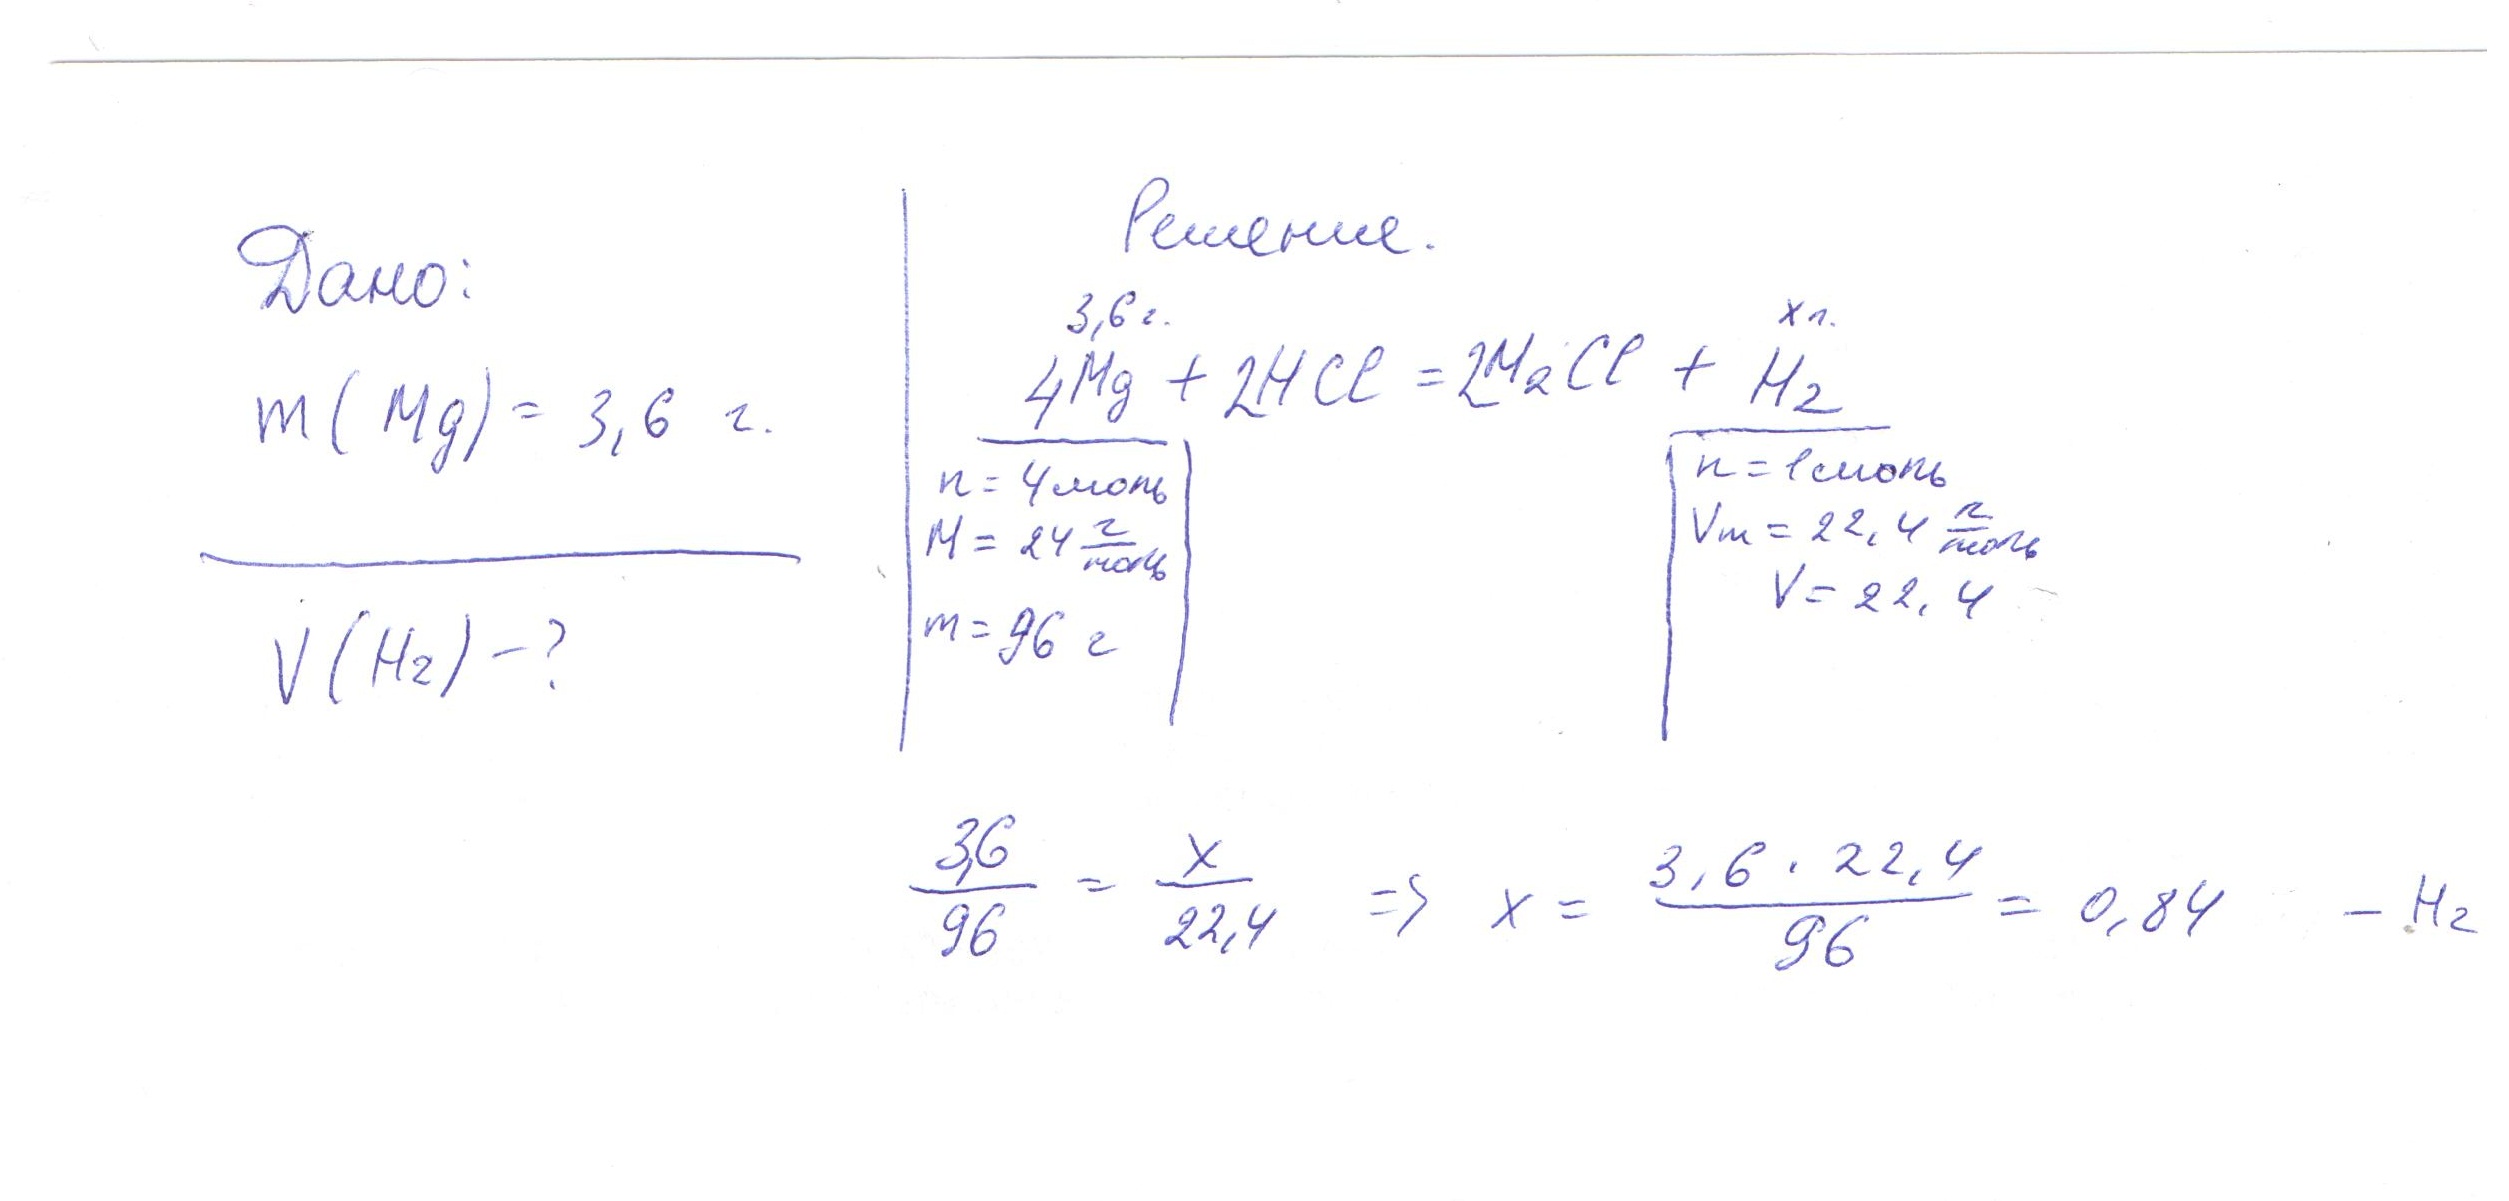 Дано:
m(Mg) = 3,6 г.
V(H₂) - ?
Решение.
3,6 г. x л.
4Mg + 2HCl = 2M₂Cl + H₂
n = 4 моль
M = 24 г/моль
m = 96 г
n = 1 моль
Vm = 22,4 л/моль
V = 22,4
3,6/96 = x/22,4 => x = 3,6 · 22,4/96 = 0,84 - H₂